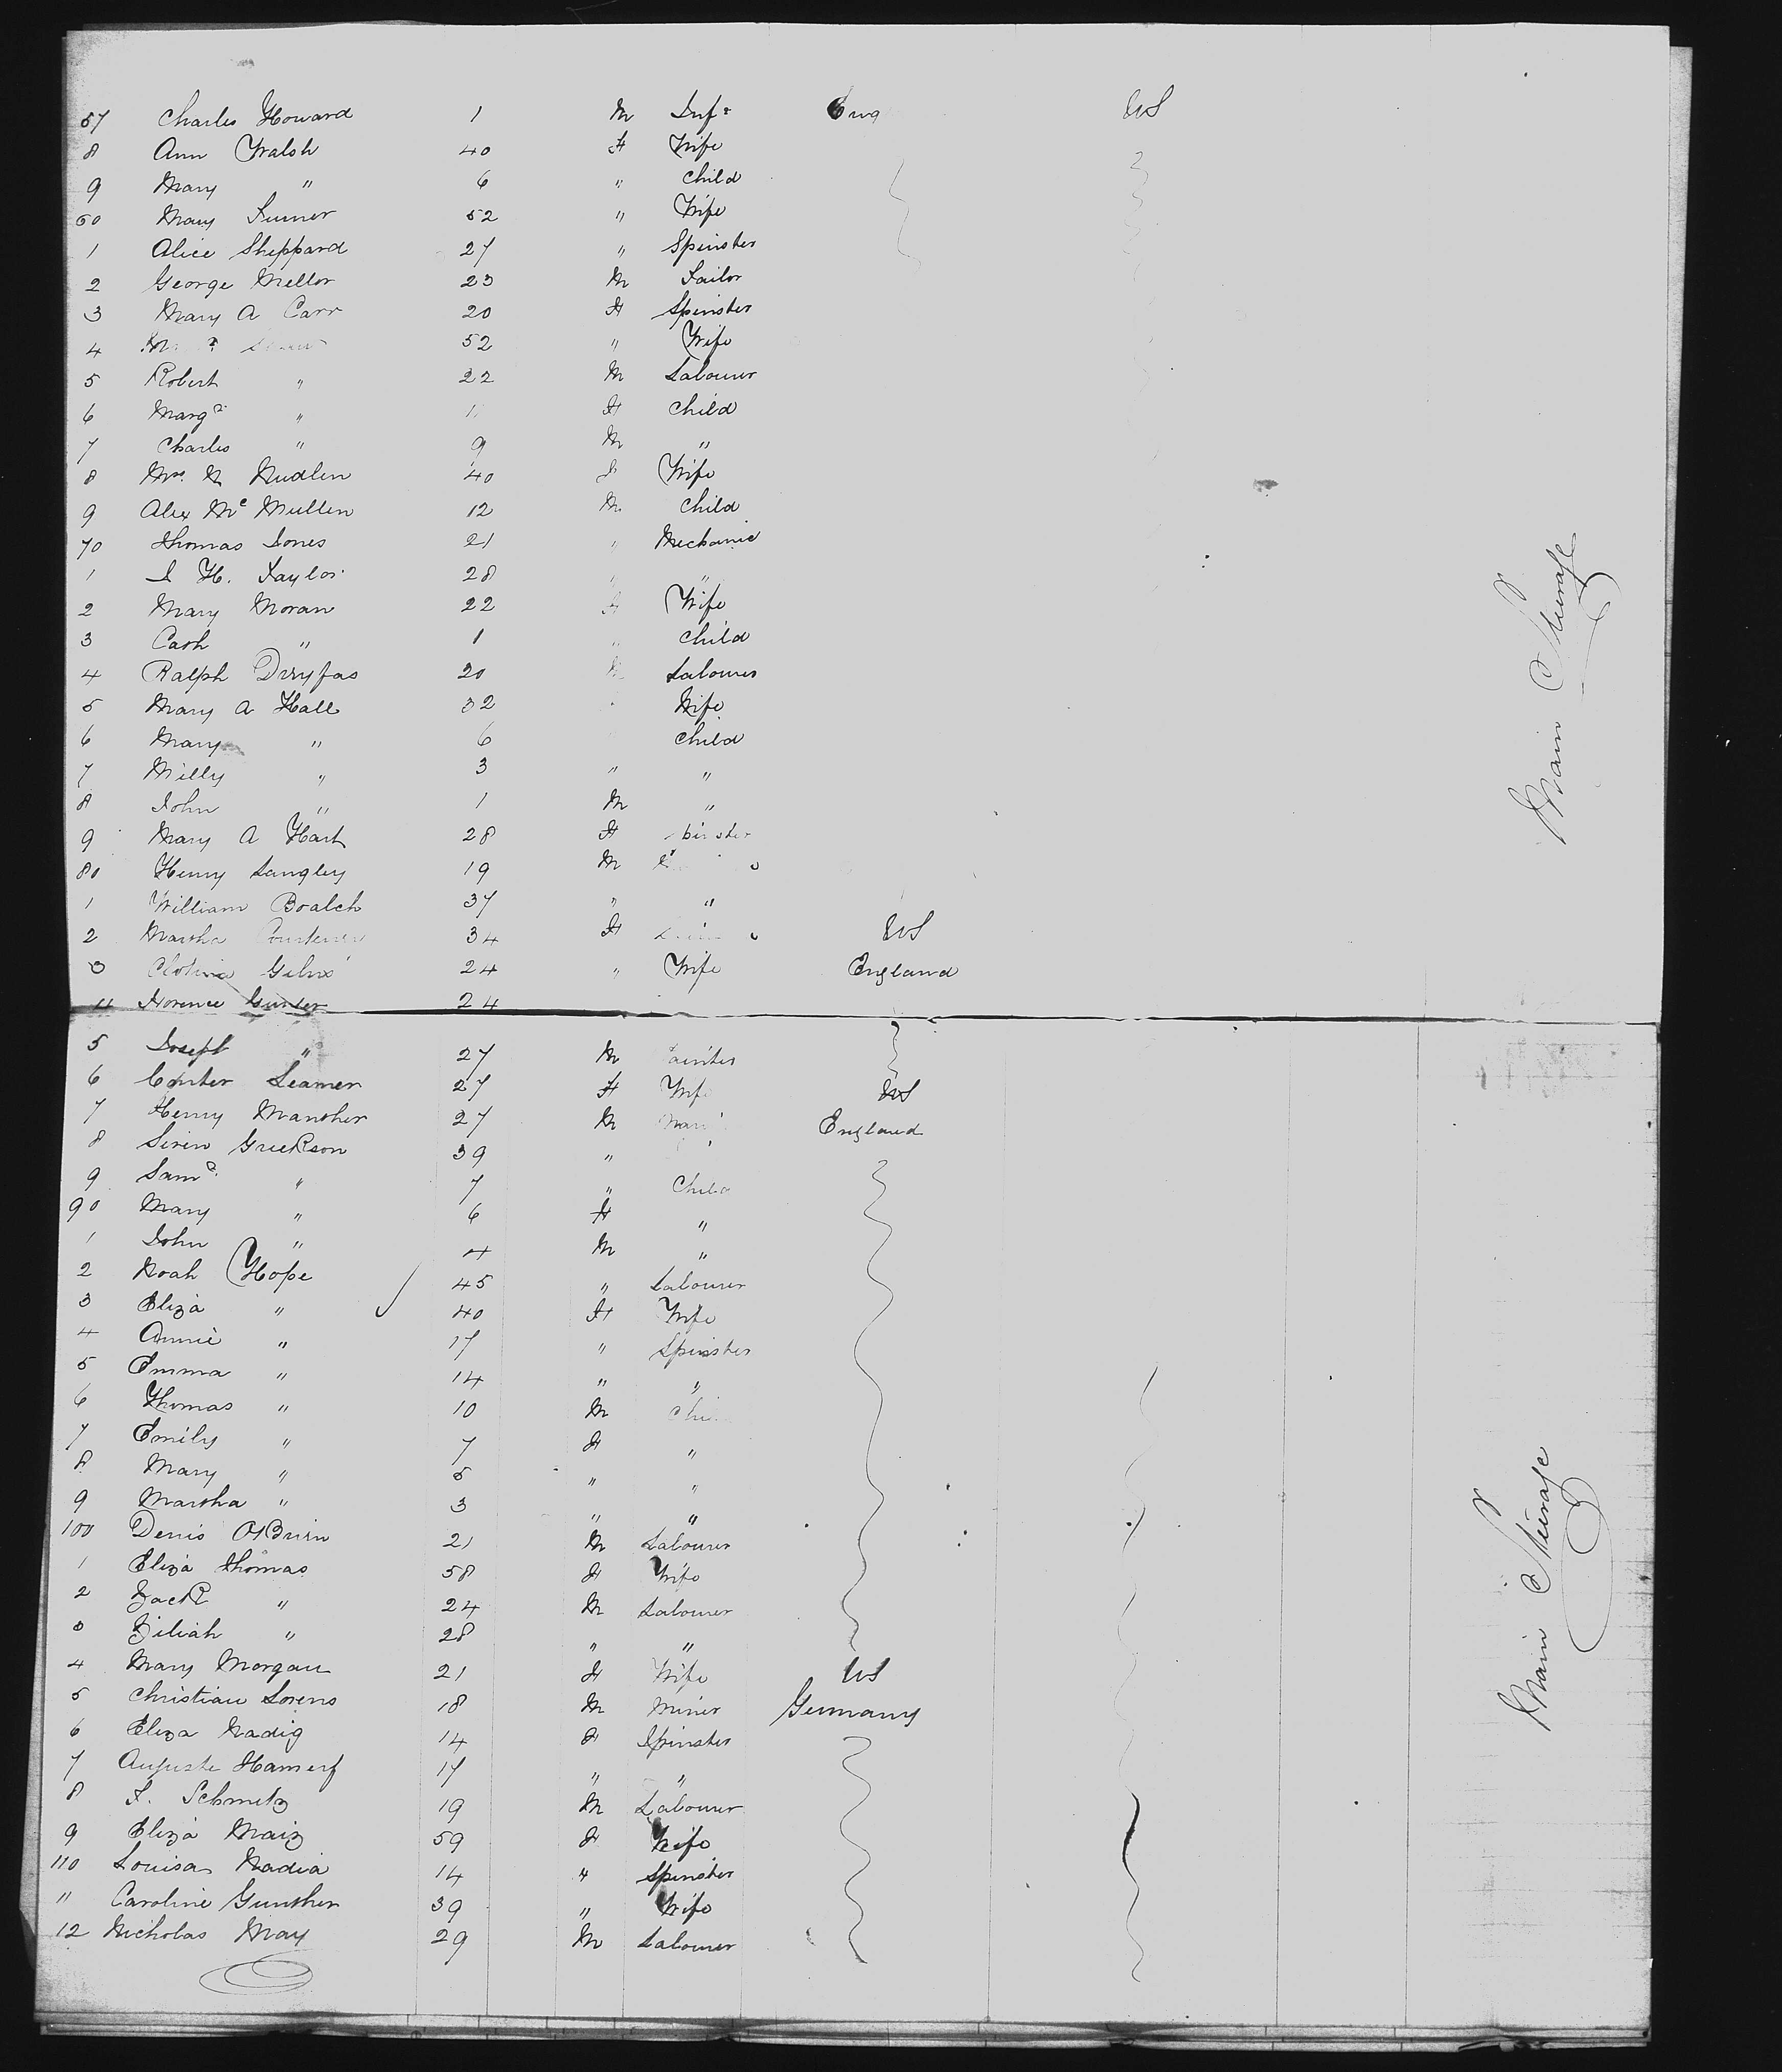 57 Charles Howard 1 M Inft Eng US
8 Ann Walsh 40 F Wife
9 Mary " 6 " Child
60 Mary Turner 52 " Wife
1 Alice Sheppard 27 " Spinster
2 George Mellor 23 M Tailor
3 Mary A Carr 20 F Spinster
4 52 " Wife
5 Robert " 22 M Labourer
6 Margt " F Child
7 Charles " 9 M "
8 Mrs N Nudlen 40 F Wife
9 Alex McMullen 12 M Child
70 Thomas Jones 21 " Mechanic
1 J H. Taylor 28 " "
2 Mary Moran 22 F Wife
3 Cash " 1 " Child
4 Ralph Dreyfas 20 Labourer
5 Mary A Hall 32 Wife
6 Mary " 6 Child
7 Milly " 3 " "
8 John " 1 M "
9 Mary A Hart 28 F Spinster
80 Henry Langley 19 M
1 William Boalch 37 " "
2 Martha 34 F US
3 24 " Wife England
4 Florence Gunter 24
5 Joseph " 27 M Painter
6 Leamer 27 F Wife US
7 Henry Manther 27 M England
8 Siren Grickson 39 "
9 Saml " 7 " Child
90 Mary " 6 F "
1 John " 4 M "
2 Noah Hope 45 " Labourer
3 Eliza " 40 F Wife
4 Annie " 17 " Spinster
5 Emma " 14 " "
6 Thomas " 10 M Child
7 Emily " 7 F "
8 Mary " 5 " "
9 Martha " 3 " "
100 Denis O'Brien 21 M Labourer
1 Eliza Thomas 58 F Wife
2 Zack " 24 M Labourer
3 Ziliah " 28 " "
4 Mary Morgan 21 F Wife US
5 Christian Lorens 18 M Miner Germany
6 Eliza Nadig 14 F Spinster
7 Auguste Hamerf 17 " "
8 F. Schmitz 19 M Labourer
9 Eliza Maiz 59 F Wife
110 Louisa Nadia 14 " Spinster
11 Caroline Gunther 39 " Wife
12 Nicholas May 29 M Labourer
Main Steerage
Main Steerage